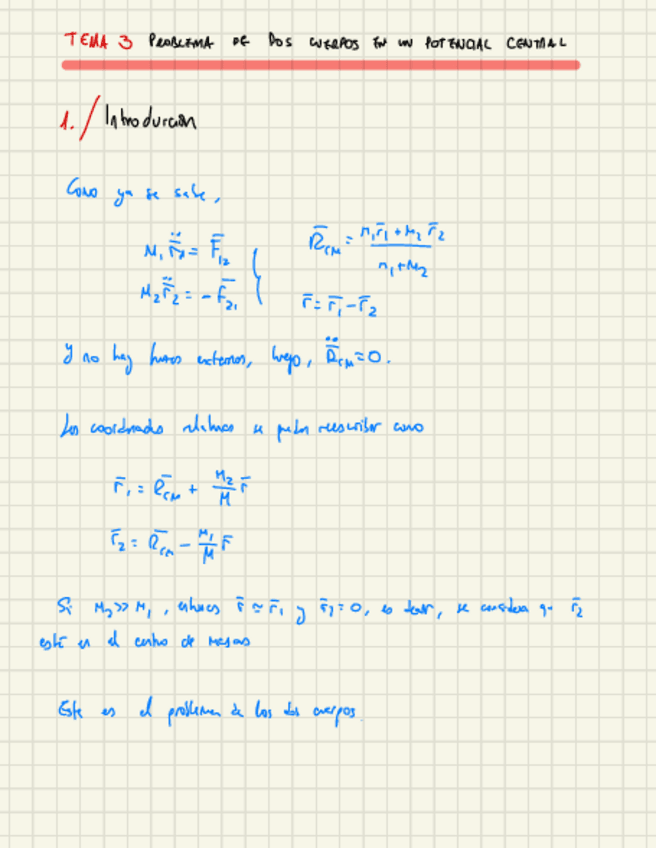 TEMA 3 PROBLEMA DE DOS CUERPOS EN UN POTENCIAL CENTRAL
1./ Introducción
Como ya se sabe,
M₁ r̈₁ = F̄₁₂
R̄_CM = (M₁r̄₁ + M₂r̄₂)/(M₁+M₂)
M₂ r̈₂ = -F̄₂₁
r̄ = r̄₁ - r̄₂
Y no hay fuerzas externas, luego, R̈_CM = 0.
Las coordenadas relativas se pueden reescribir como
r̄₁ = R̄_CM + M₂/M r̄
r̄₂ = R̄_CM - M₁/M r̄
Si M₂ >> M₁, entonces r̄ ≃ r̄₁ y r̄₂ = 0, es decir, se considera que r̄₂
está en el centro de masas
Este es el problema de los dos cuerpos.